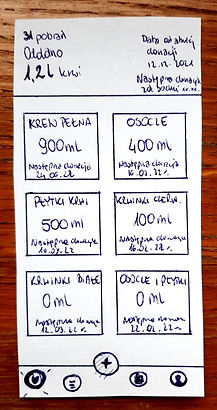 31 pobrań
Oddano
1,2 l krwi
Data ostatniej
donacji
12.12.2021
Następna donacja
za
KREW PEŁNA
900 ml
Następna donacja
OSOCZE
400 ml
Następna donacja
16.02.22r.
PŁYTKI KRWI
500 ml
Następna donacja
KRWINKI CZERW.
100 ml
Następna donacja
16.02.22r.
KRWINKI BIAŁE
0 ml
Następna donacja
12.03.22r.
OSOCZE I PŁYTKI
0 ml
Następna donacja
22.01.22r.